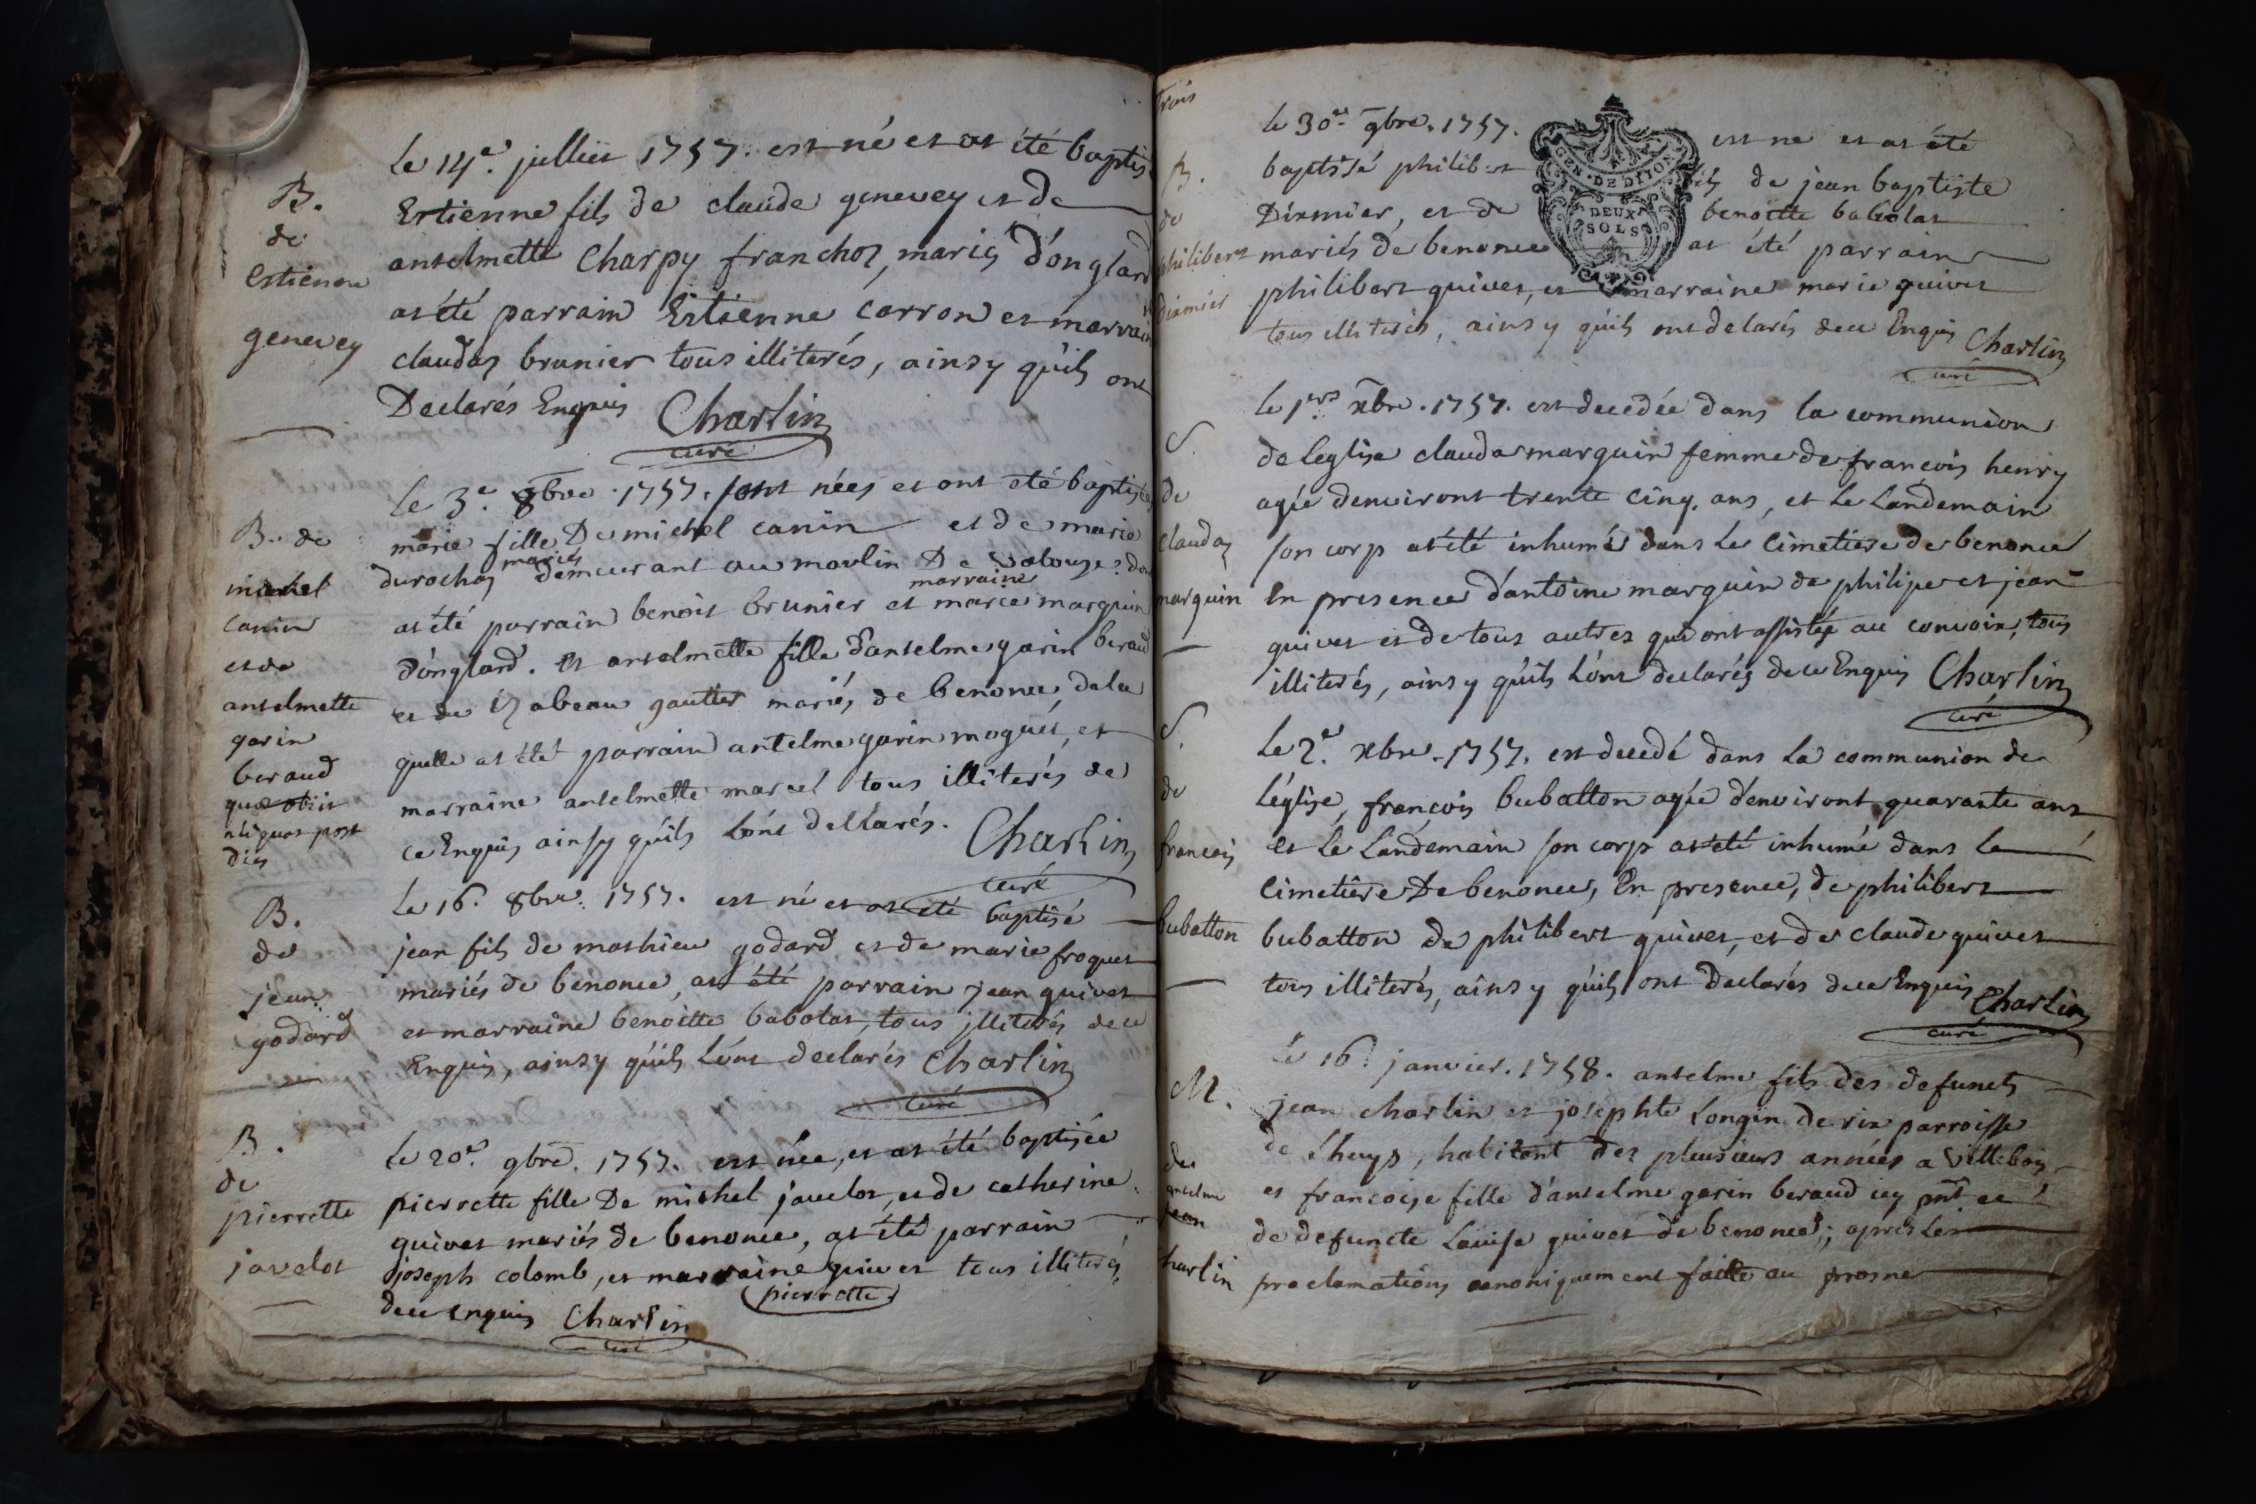 B.
de
Estienne
genevey
le 14e. jullïet 1757. est né et at été baptis
Estienne fils de claude genevey et de
antelmette Charpy franchoz, mariés d'onglard
at été parrain Estienne carron et marrain
claudaz brunier tous illiterés, ainsy qu'ils ont
Declarés Enquis Charlin
curé
B. de
michel
canin
et de
antelmette
garin
beraud
quæ obiit
aliquot post
dies
le 3e. 8bre. 1757. sont nées et ont été baptisées
marie fille De michel canin et de marie
durochaz mariés demeurant au moulin De valouze: dont
at été parrain benoit brunier et marraine marie marguin
d'onglard. et antelmette fille d'antelme garin beraud
et de izabeau gautier mariés de benonce, dela
quelle at été parrain antelme garin moguet, et
marraine antelmette marcel tous illiterés de
ce Enquis ainsy qu'ils l'ont declarés. Charlin
curé
B.
de
jean
godard
le 16. 8bre. 1757. est né et at été baptisé
jean fils de mathieu godard et de marie froquet
mariés de benonce, at été parrain jean quivet
et marraine benoitte babolat, tous jlliterés de ce
Enquis, ainsy qu'ils l'ont declarés Charlin
curé
B.
de
pierrette
javelot
le 20e. 9bre. 1757. est née, et at été baptisée
pierrette fille De michel javelot, et de catherine
quivet mariés de benonce, at été parrain
joseph colomb, et marraine quivet tous illiterés
pierrette
de ce enquis Charlin
curé
trois
B.
de
philibert
diamier
le 30e. 9bre. 1757. est ne et at été
baptisé philibert fils de jean baptiste
Diamier, et de benoitte babolat
mariés de benonce at été parrain
philibert quivet, et marraine marie quivet
tous illiterés, ainsy qu'ils ont delarés de ce Enquis Charlin
curé
GEN. DE DIJON
DEUX
SOLS
S.
de
claudaz
marguin
le 1ers xbre. 1757. est decedée dans la communion
de leglise claudaz marguin femme de francois henry
agée denviront trente cinq. ans, et le Landemain
son corp at été inhumé dans le cimetiere de benonce
En presence d'antoine marguin de philipe et jean
quivet et de tous autres qui ont assistés au convoir, tous
illiterés, ainsy qu'ils l'ont declarés de ce Enquis Charlin
curé
S.
de
francois
bubatton
le 2e. xbre. 1757. est decedé dans la communion de
l'église, francois bubatton agée d'environt quarante ans
et le Landemain son corp at été inhumé dans le
cimetiére De benonce, En presence, de philibert
bubatton de philibert quivet, et de claude quivet
tous illiterés, ainsy qu'ils ont declarés de ce Enquis Charlin
curé
M.
de
antelme
jean
charlin
le 16. janvier. 1758. antelme fils des defuncts
jean charlin et josephte Longin de rix parroisse
de Lhuys, habitant dez pleusieurs années a villebois
et francoise fille d'antelme garin beraud icy pnt et
de defuncte Louise quivet de benonce; apres les
proclamations canoniquement faitte au prosne